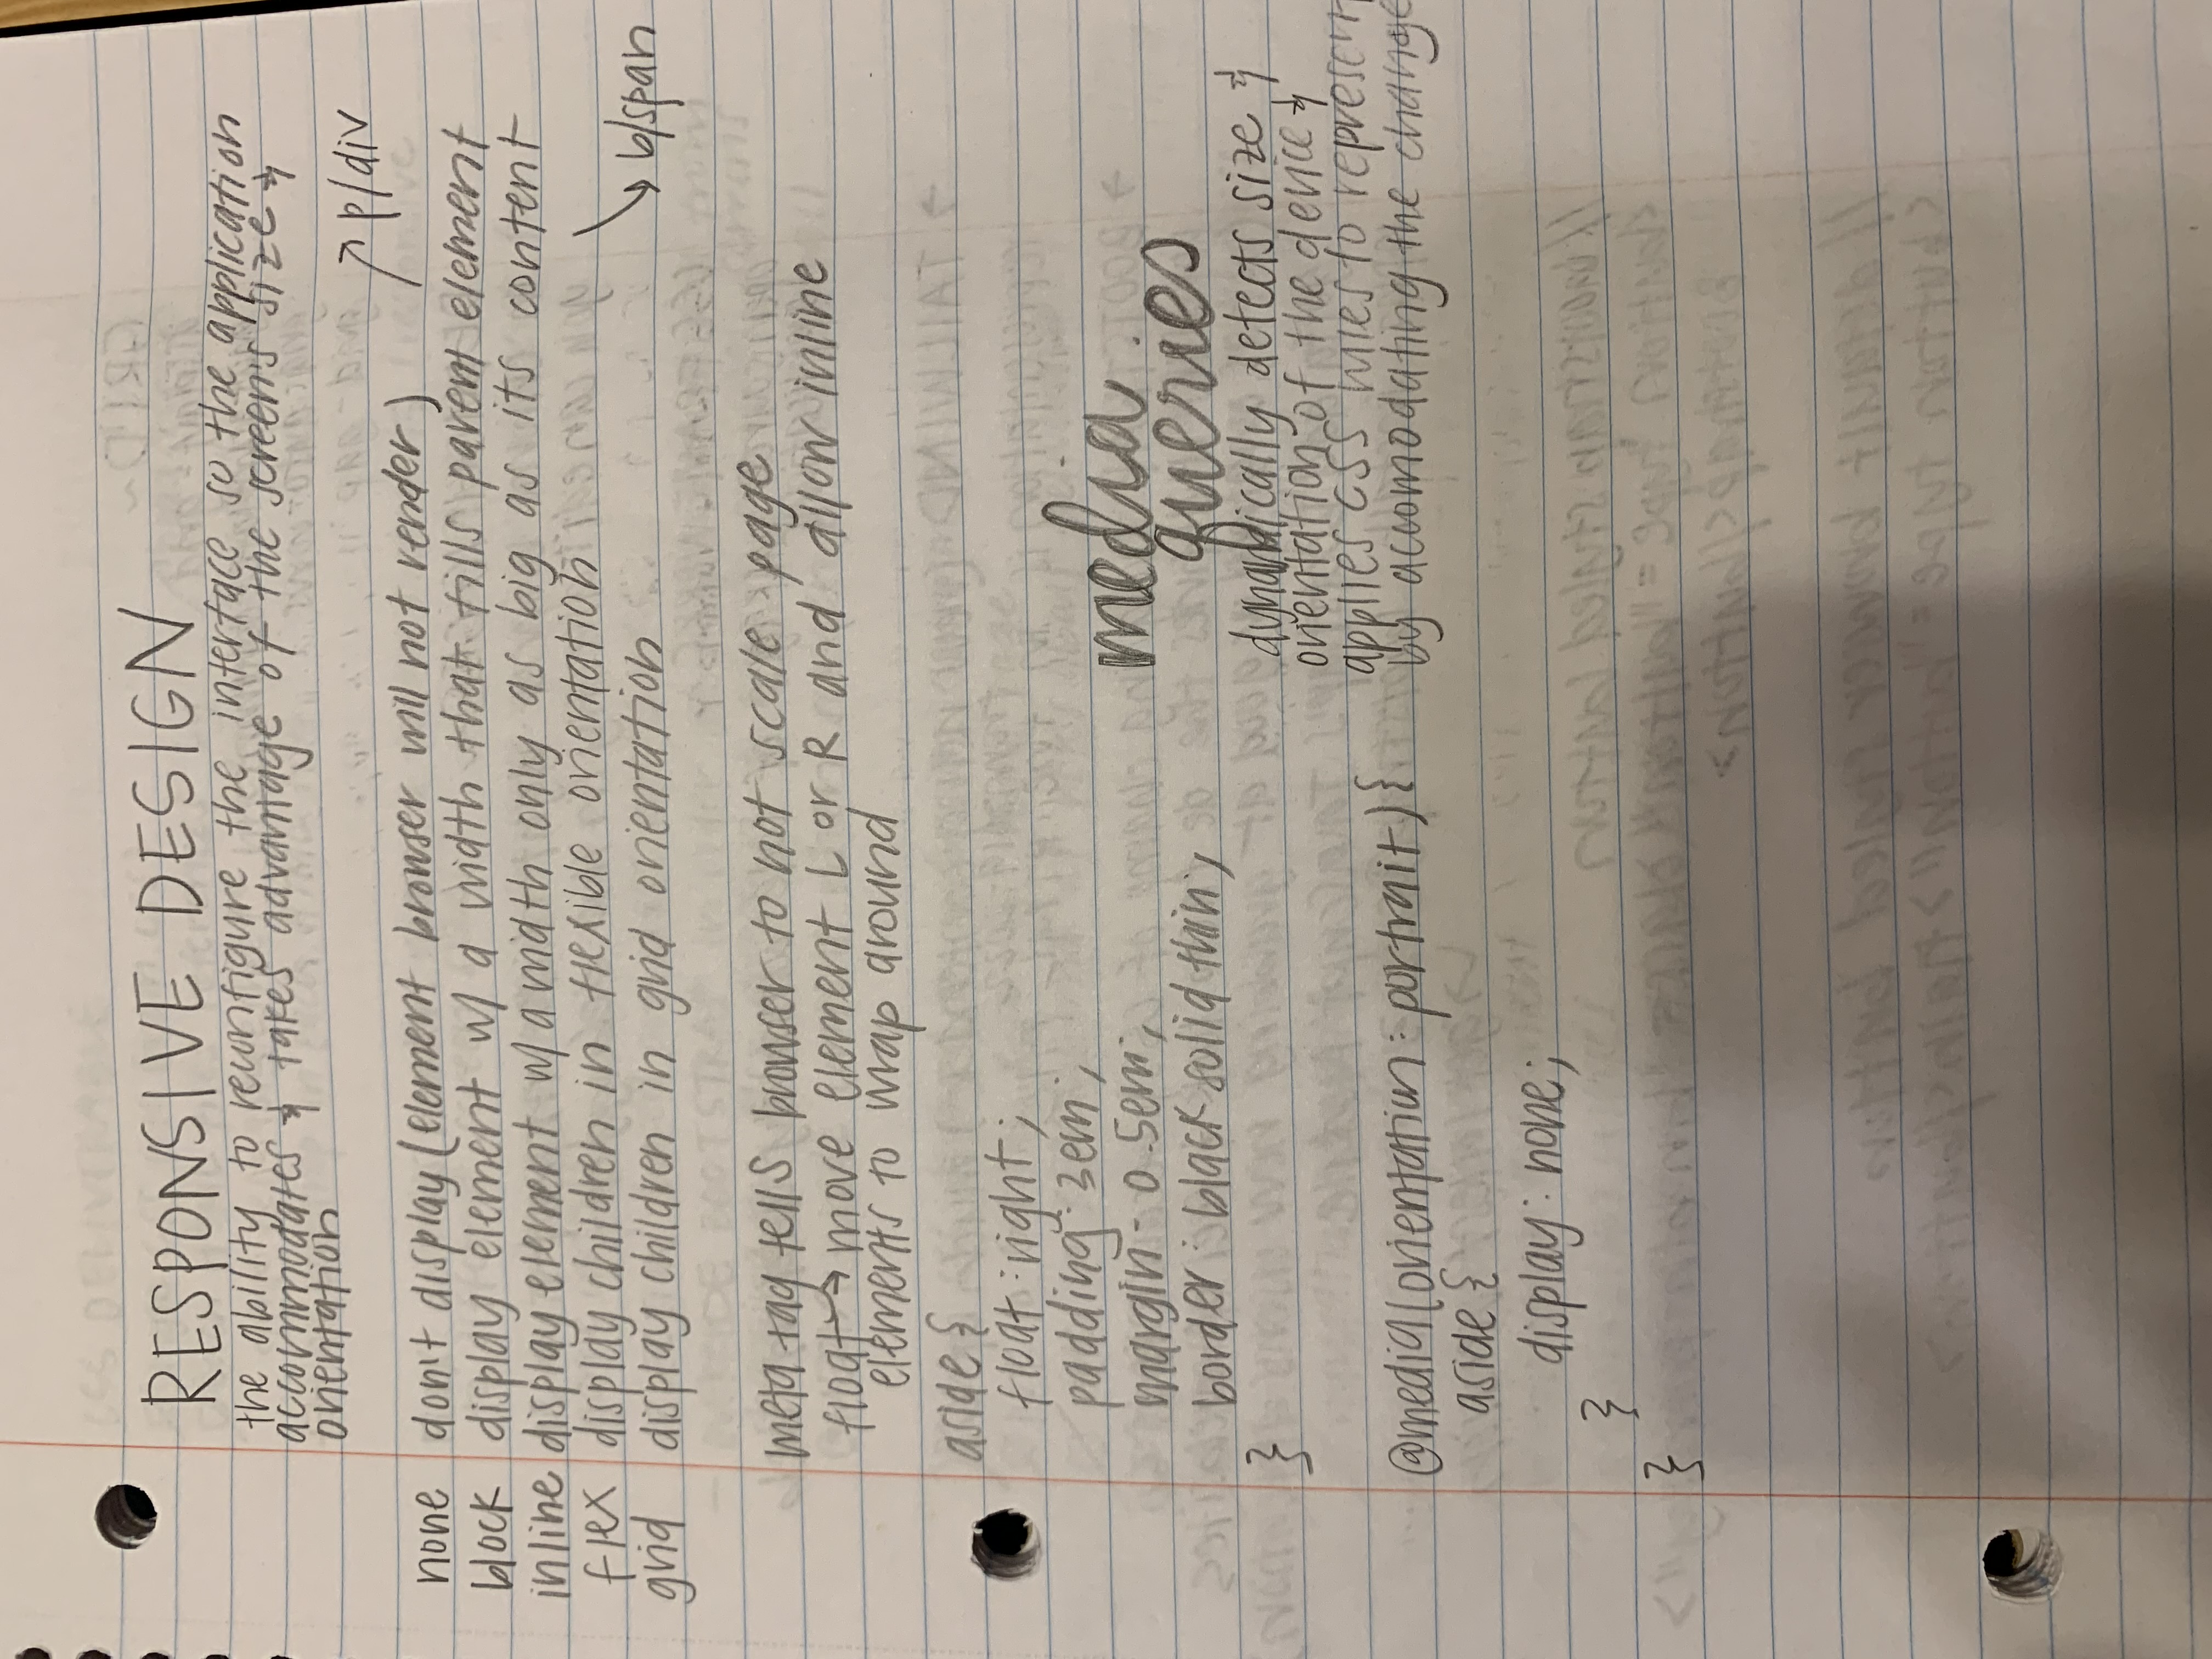 RESPONSIVE DESIGN
the ability to reconfigure the interface so the application
accommodates & takes advantage of the screen's size &
orientation
↗ p/div
none don't display (element browser will not render)
block display element w/ a width that fills parent element
inline display element w/ a width only as big as its content
flex display children in flexible orientation
grid display children in grid orientation
↘ b/span
meta tag tells browser to not scale page
float → move element L or R and allow inline
elements to wrap around
aside {
float : right ;
padding : 3em ;
margin - 0.5em ;
border : black solid thin ;
}
@media (orientation : portrait) {
aside {
display : none ;
}
}
media
queries
dynamically detects size &
orientation of the device &
applies CSS rules to represent
by accomodating the change